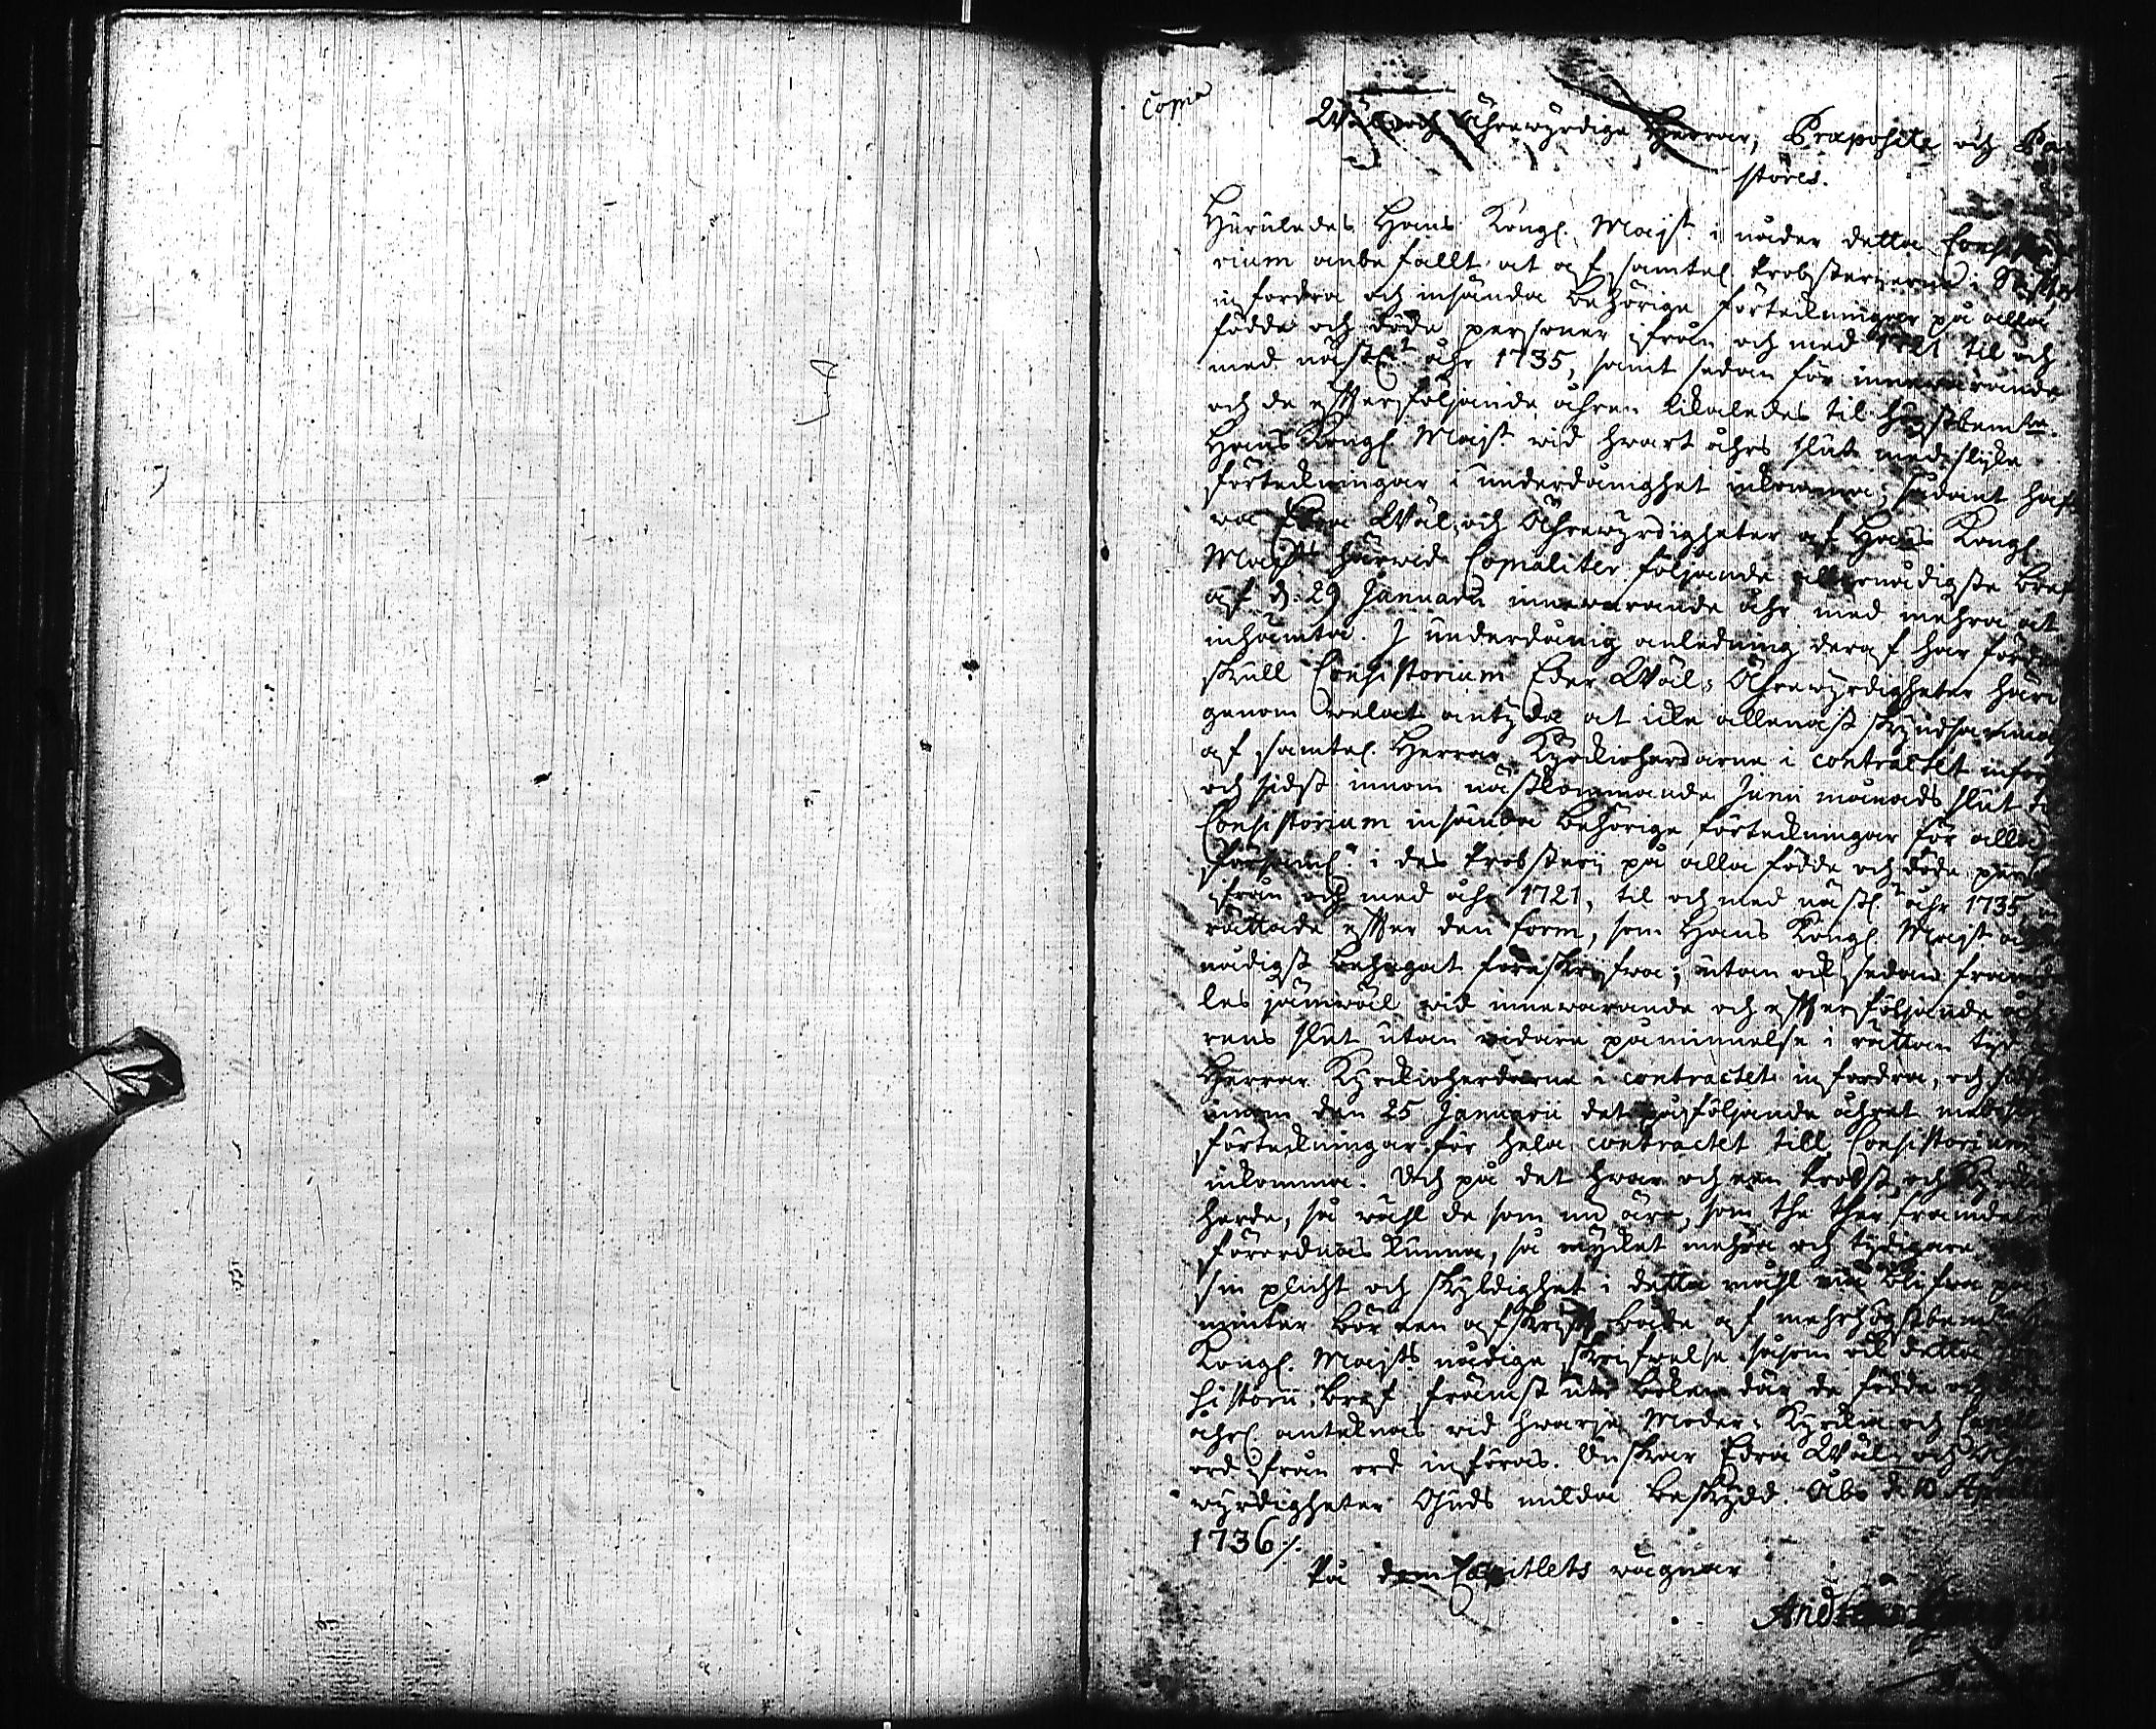 Copia
Wäl och Ährewyrdige Herrar, Præpositi och Pa-
stores.
Huruledes Hans Kongl. Maijt i nåder detta Consisto-
rium anbefallt at af samtel Probsterierne i
infordra och insända behörige förteckningar på alla
födde och döde personer ifrån och med 1721 til och
med nästl åhr 1735, samt sedan för innewarande
och de efterföljande åhren likaledes til högstbemte
Hans Kongl Maijt wid hwart åhrs slut med slijke
förteckningar i underdånighet inkomma; sådant haf-
wa Edra Wäl och Ährewyrdigheter af Hans Kongl
Maijts härwid Copialiter följande allernådigste bref
af d. 29 Januarii innewarande åhr med mehra at
inhämta. I underdånig anledning deraf har förden
skull Consistorium Eder Wäl- Ährewyrdigheter här-
genom welat antyda at icke allenast skyndsammast
af samtel. Herrar Kyrkioherdarne i contractet
och sidst innom nästkommande Junii månads slut
Consistorium insända behörige förteckningar för alla
Församl. i des Probsterij på alla födde och döde
ifrån och med åhr 1721, til och med nästl åhr 1735
rättade efter den form, som Hans Kongl Maijt
nådigst behagat föreskrifwa; utan ock sedan framde-
les jämwäl wid innewarande och efterföljande åh-
rens slut utan widare påminnelse i rättan tijd
Herrar Kyrkioherdarne i contractet infordra, och sidst
innom den 25 Januarii det påföljande åhret med
förteckningar för hela contractet till Consistorium
inkomma. Och på det hwar och een Probst och Kyrkio-
herde, så wähl de som nu äro, som the ther framdeles
förordnas kunna, så mycket mehra och tydigare
sin plicht och skyldighet i detta måhl må blifwa på-
minter bör een afskrift både af mehrhögstbemte
Kongl. Maijts nådige skrifwelse såsom ock detta Con-
sistorii bref främst uti boken där de födde och
åhrl antecknas wid hwarje Moder- Kyrkia och Capell
ord ifrån ord införas. Önskar Edra Wäl och Ähre-
wyrdigheter Guds milda beskydd. Åbo d. 10 April
1736 ./.
På dom Capitlets wägnar